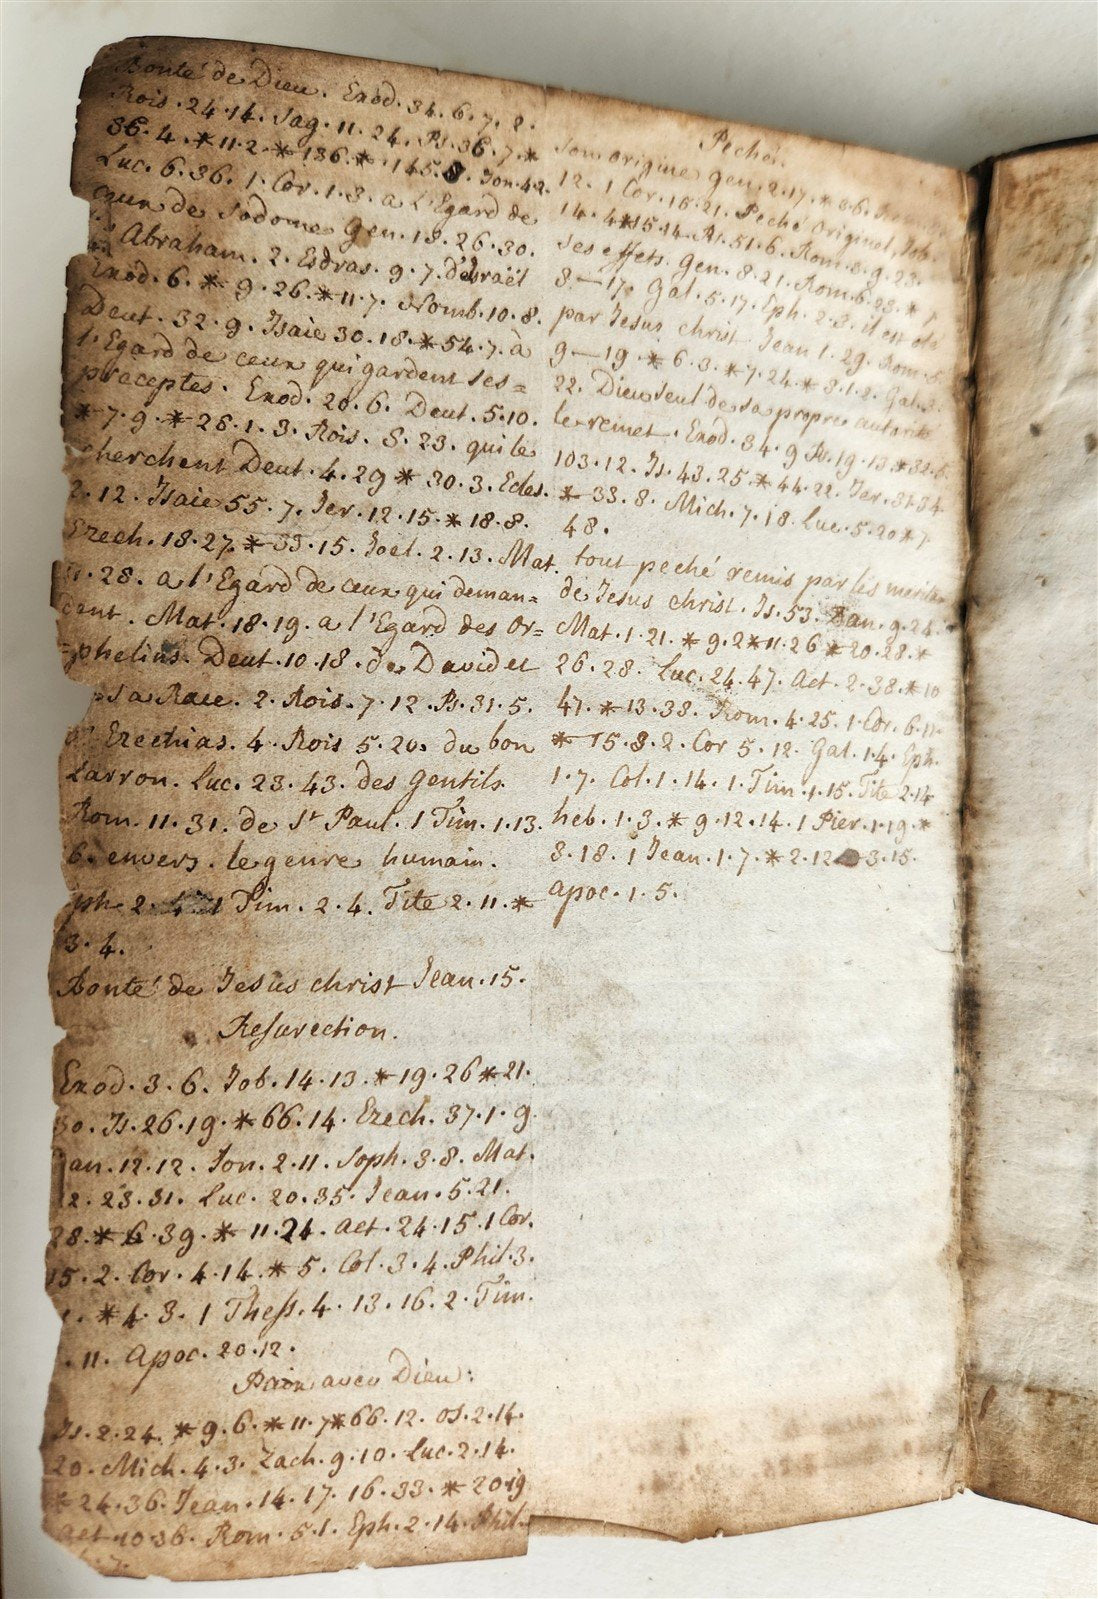 Bonté de Dieu. Exod. 34. 6. 7. 8.
Rois. 24. 14. Sag. 11. 24. Ps. 36. 7. *
36. 4. * 11. 2. * 136. * 145. 8. Jon. 4. 2.
Luc. 6. 36. 1. Cor. 1. 3. a l'Egard de
de Sodome Gen. 19. 26. 30.
Abraham. 2. Esdras. 9. 7. d'Israël
Exod. 6. * 9. 26. * 11. 7. Nomb. 10. 8.
Deut. 32. 9. Isaie 30. 18. * 54. 7. à
l'Egard de ceux qui gardent ses=
præceptes. Exod. 20. 6. Deut. 5. 10.
* 7. 9. * 28. 1. 3. Rois. 8. 23. qui le
cherchent Deut. 4. 29 * 30. 3. Ecles.
2. 12. Isaie 55. 7. Jer. 12. 15. * 18. 8.
Ezech. 18. 27. * 33. 15. Joel. 2. 13. Mat.
11. 28. a l'Egard de ceux qui deman=
dent. Mat. 18. 19. a l'Egard des Or=
=phelins. Deut. 10. 18. de David et
sa Race. 2. Rois. 7. 12. Ps. 31. 5.
Ezechias. 4. Rois 5. 20. du bon
Larron. Luc. 23. 43. des Gentils
Rom. 11. 31. de St Paul. 1 Tim. 1. 13.
6. envers. le genre humain.
ph. 2. 4. 1 Tim. 2. 4. Tite 2. 11. *
3. 4.
Bonté de Jesus christ Jean. 15.
Resurection.
Exod. 3. 6. Job. 14. 13. * 19. 26 * 21.
30. Is. 26. 19. * 66. 14. Ezech. 37. 1. 9.
Dan. 12. 12. Jon. 2. 11. Soph. 3. 8. Mat.
12. 23. 31. Luc. 20. 35. Jean. 5. 21.
28. * 6. 39. * 11. 24. Act. 24. 15. 1 Cor.
15. 2. Cor. 4. 14. * 5. Col. 3. 4. Phil. 3.
* 4. 3. 1 Thess. 4. 13. 16. 2. Tim.
. 11. Apoc. 20. 12.
Paix avec Dieu:
Is. 2. 24. * 9. 6. * 11. 7 * 66. 12. Os. 2. 14.
20. Mich. 4. 3. Zach. 9. 10. Luc. 2. 14.
* 24. 36. Jean. 14. 17. 16. 33. * 20. 19
Act. 10. 36. Rom. 5. 1. Eph. 2. 14. Phil.
Pechés.
son origine Gen. 2. 17. * 3. 6.
12. 1 Cor. 15. 21. Peché Originel, Job.
14. 4 * 15. 14. Ps. 51. 6. Rom. 3. 9. 23.
ses effets. Gen. 8. 21. Rom. 6. 23. *
8.—17. Gal. 5. 17. Eph. 2. 3. il est oté
par Jesus christ Jean 1. 29. Rom. 5.
9—19. * 6. 3. * 7. 24. * 8. 1. 2. Gal. 3.
22. Dieu seul de sa propre autorité
le remet. Exod. 34. 9 Ps. 19. 13 * 32. 5.
103. 12. Is. 43. 25. * 44. 22. Jer. 31. 34
* 33. 8. Mich. 7. 18. Luc. 5. 20 * 7.
48.
tout peché remis par les merites
de Jesus christ. Is. 53. Dan. 9. 24.
Mat. 1. 21. * 9. 2 * 11. 26 * 20. 28. *
26. 28. Luc. 24. 47. Act. 2. 38. * 10
41. * 13. 38. Rom. 4. 25. 1. Cor. 6. 11.
* 15. 3. 2. Cor 5. 12. Gal. 1. 4. Eph.
1. 7. Col. 1. 14. 1. Tim. 1. 15. Tite 2. 14
heb. 1. 3. * 9. 12. 14. 1 Pier. 1. 19. *
3. 18. 1 Jean. 1. 7. * 2. 12 3. 15.
apoc. 1. 5.